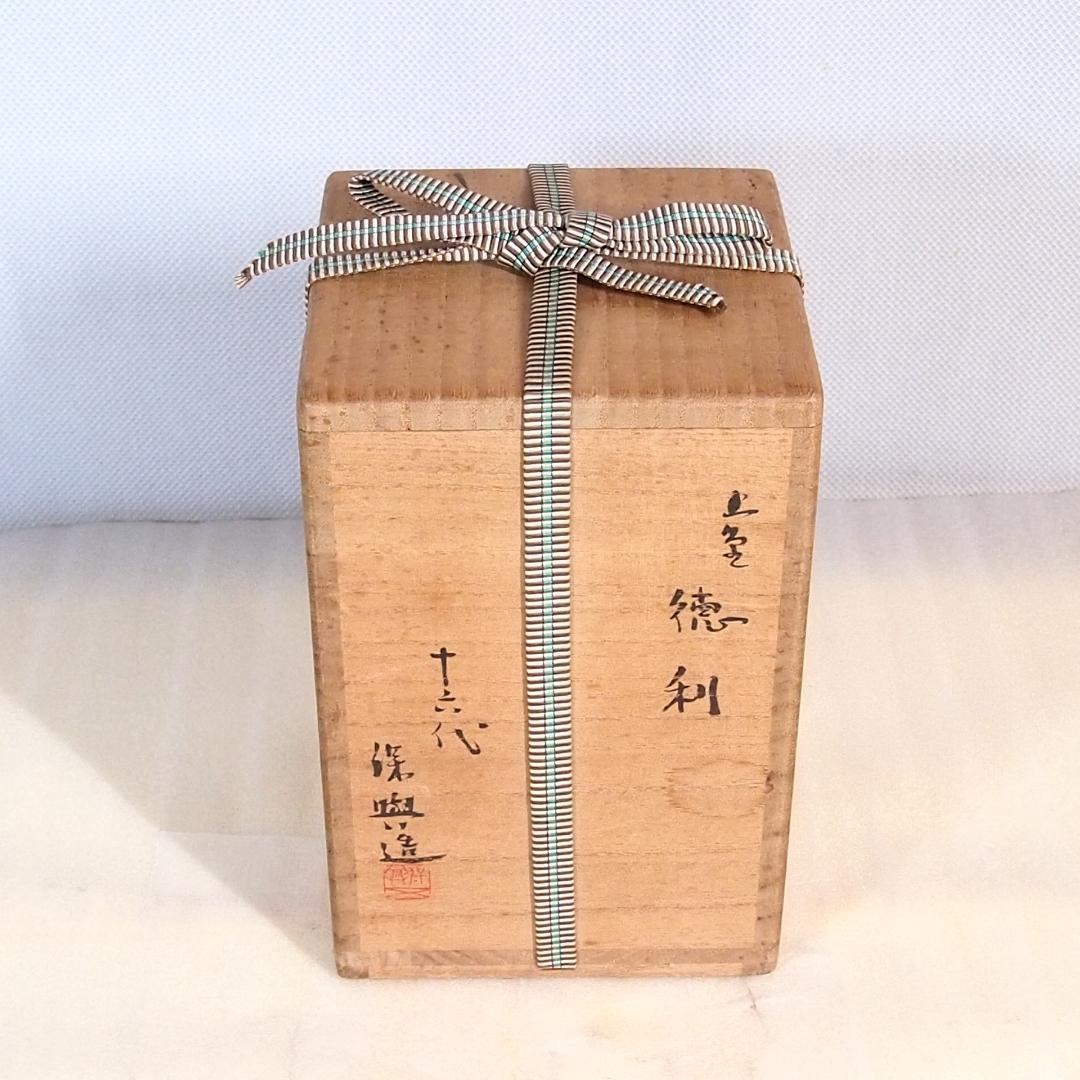 上野 徳利
十六代
保興造